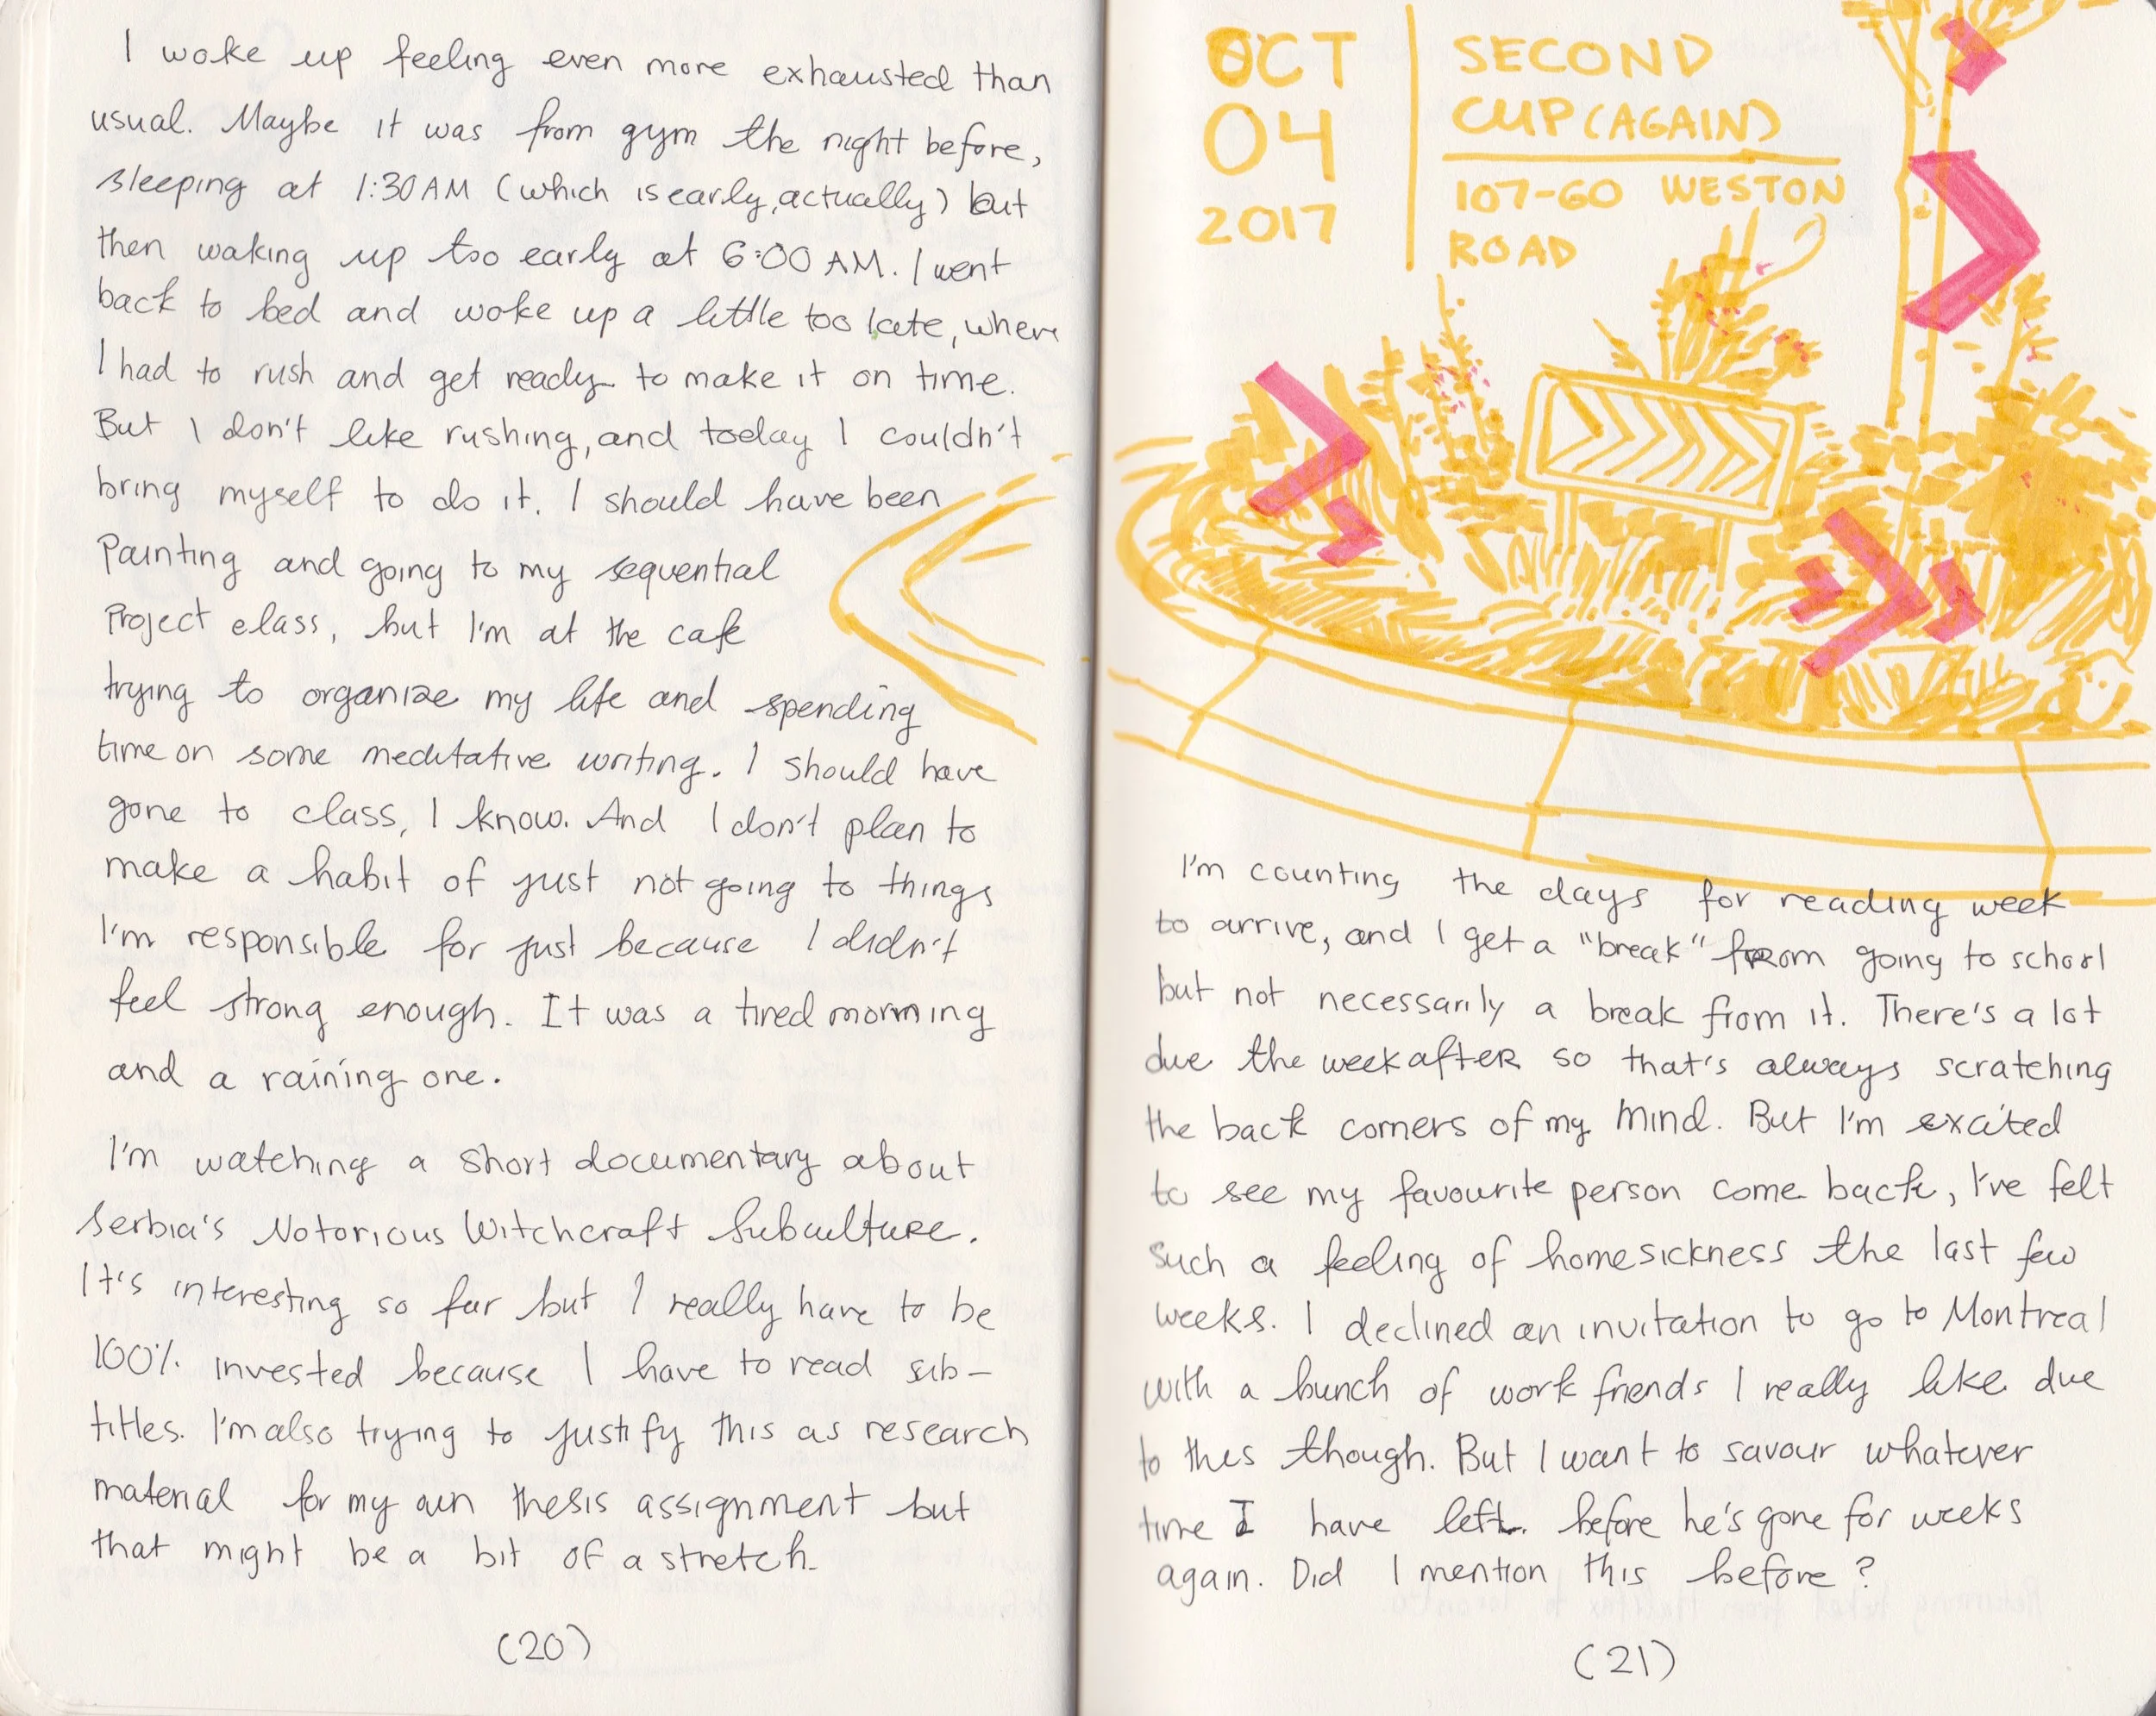 I woke up feeling even more exhausted than
usual. Maybe it was from gym the night before,
sleeping at 1:30 AM (which is early, actually) but
then waking up too early at 6:00 AM. I went
back to bed and woke up a little too late, where
I had to rush and get ready to make it on time.
But I don't like rushing, and today I couldn't
bring myself to do it. I should have been
painting and going to my sequential
Project class, but I'm at the cafe
trying to organize my life and spending
time on some meditative writing. I should have
gone to class, I know. And I don't plan to
make a habit of just not going to things
I'm responsible for just because I didn't
feel strong enough. It was a tired morning
and a raining one.
I'm watching a short documentary about
Serbia's Notorious Witchcraft Subculture.
It's interesting so far but I really have to be
100% invested because I have to read sub-
titles. I'm also trying to justify this as research
material for my own thesis assignment but
that might be a bit of a stretch.
(20)
OCT
04
2017
SECOND
CUP (AGAIN)
107-60 WESTON
ROAD
I'm counting the days for reading week
to arrive, and I get a "break" from going to school
but not necessarily a break from it. There's a lot
due the week after so that's always scratching
the back corners of my mind. But I'm excited
to see my favourite person come back, I've felt
such a feeling of homesickness the last few
weeks. I declined an invitation to go to Montreal
with a bunch of work friends I really like due
to this though. But I want to savour whatever
time I have left before he's gone for weeks
again. Did I mention this before?
(21)